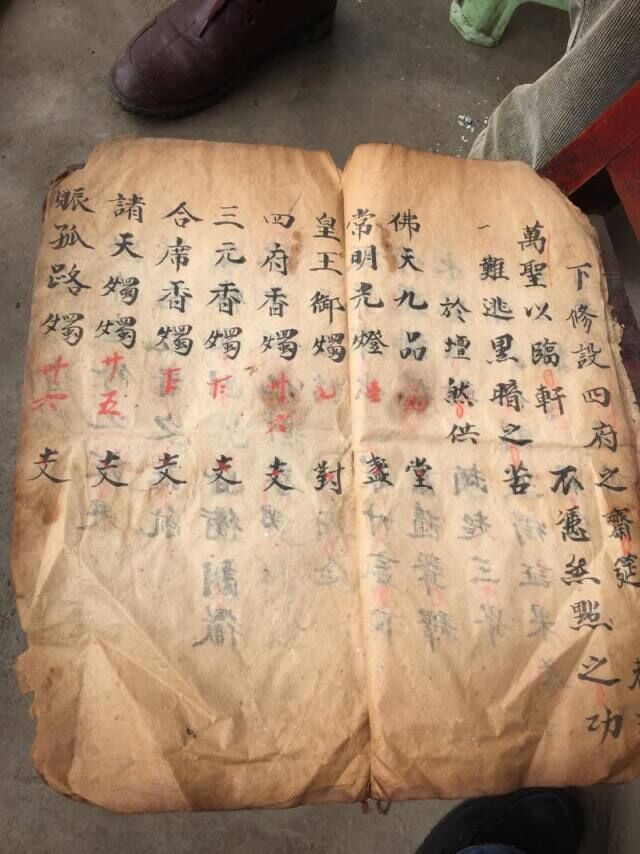 下修設四府之齋筵
萬聖以臨軒不憑然點之功
一難逃黑暗之苦
於壇然供
佛天九品堂
常明光燈盞
皇王御燭對
四府香燭卅六支
三元香燭支
合席香燭支
諸天燭燭廿五支
賑孤路燭廿六支